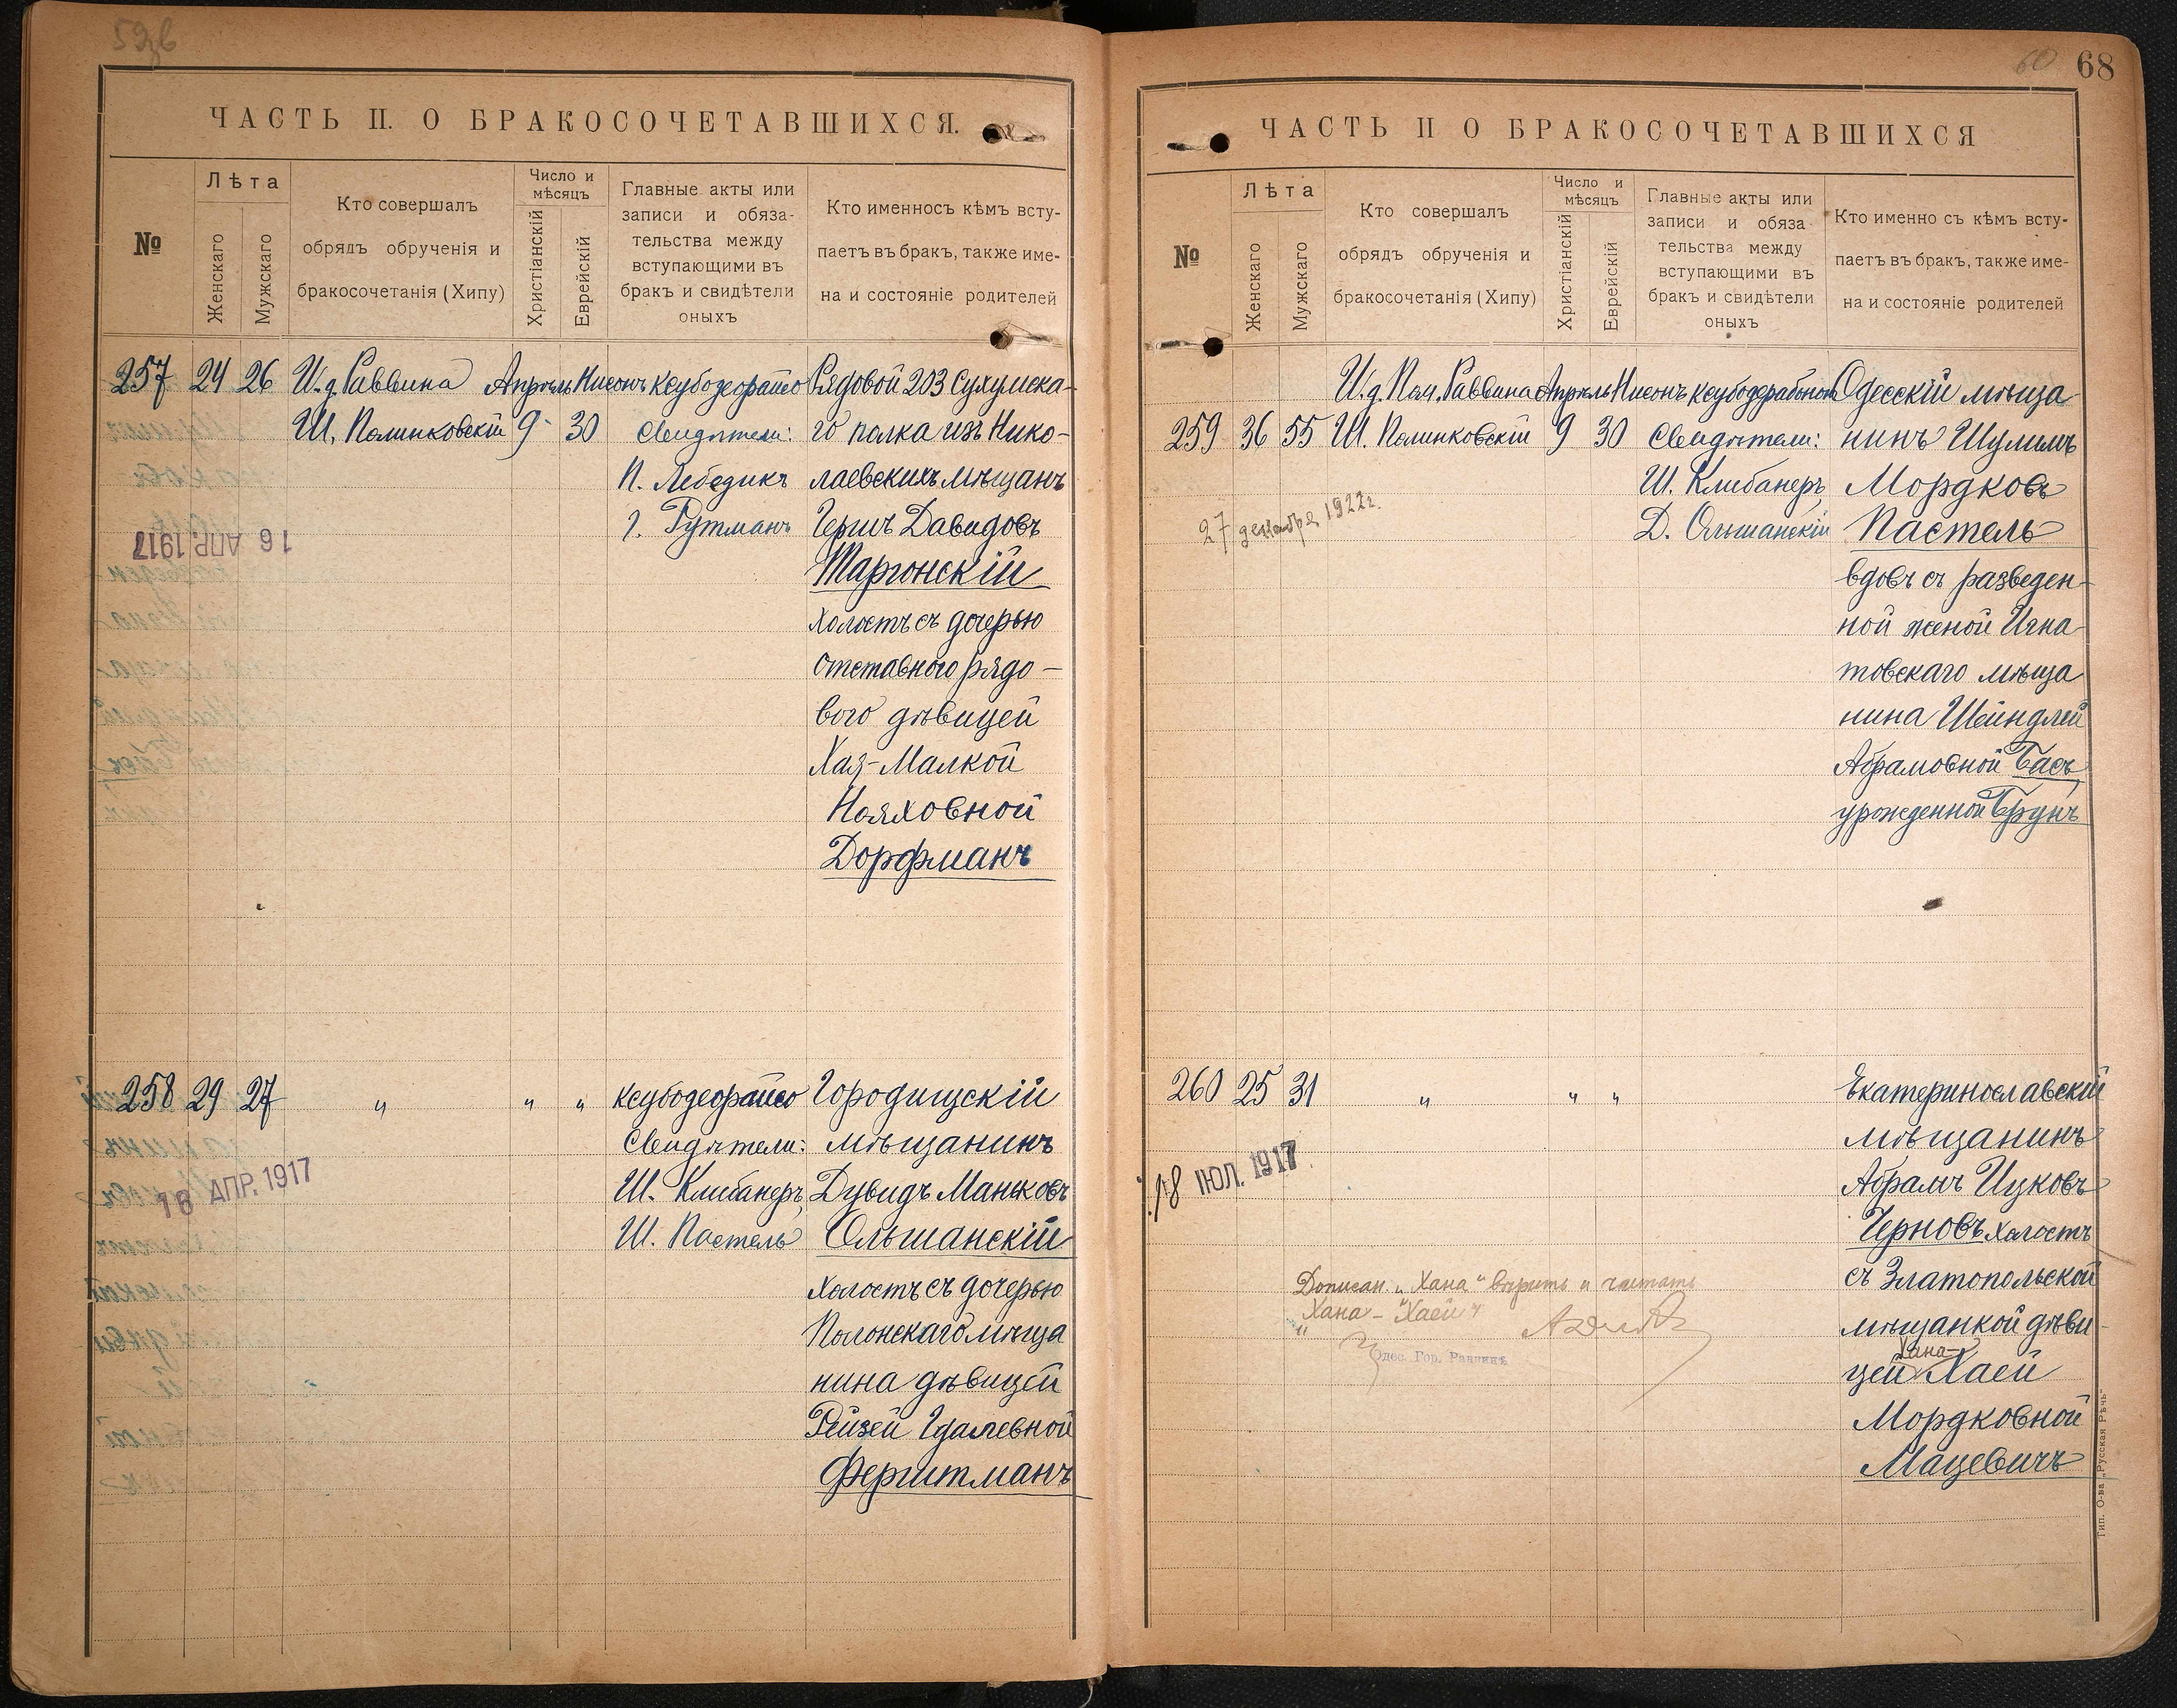 ЧАСТЬ II. О БРАКОСОЧЕТАВШИХСЯ.
№
Лѣта
Женскаго
Мужскаго
Кто совершалъ
обрядъ обрученія и
бракосочетанія (Хипу)
Число и
мѣсяцъ
Христіанскій
Еврейскій
Главные акты или
записи и обяза-
тельства между
вступающими въ
бракъ и свидѣтели
оныхъ
Кто именносъ кѣмъ всту-
паетъ въ бракъ, также име-
на и состояніе родителей
257 24 26
И. д. Раввина
Ш. Полинковскій
Апрѣль
9
Нисонъ
30
Ксубодеорайсо
Свидѣтели:
П. Лебедикъ
Г. Гутманъ
Рядовой 203 Сухумска-
го полка изъ Нико-
лаевскихъ мѣщанъ
Гершъ Давидовъ
Таргонскій
холостъ съ дочерью
отставного рядо-
вого дѣвицей
Хая-Малкой
Нояховной
Дорфманъ
16 АПР. 1917
258 29 27
" " "
Ксубодеорайсо
Свидѣтели:
Ш. Клибанеръ
Ш. Пастель
Городищскій
мѣщанинъ
Дувидъ Маньковъ
Ольшанскій
холостъ съ дочерью
Полонскаго мѣща
нина дѣвицей
Рейзей Гдалевной
Ферштманъ
16 АПР. 1917
60 68
ЧАСТЬ II О БРАКОСОЧЕТАВШИХСЯ
№
Лѣта
Женскаго
Мужскаго
Кто совершалъ
обрядъ обрученія и
бракосочетанія (Хипу)
Число и
мѣсяцъ
Христіанскій
Еврейскій
Главные акты или
записи и обяза
тельства между
вступающими въ
бракъ и свидѣтели
оныхъ
Кто именно съ кѣмъ всту-
паетъ въ бракъ, также име-
на и состояніе родителей
259 36 55
И. д. Пом. Раввина
Ш. Полинковскій
Апрѣль
9
Нисонъ
30
Свидѣтели:
Ш. Клибанеръ
Д. Ольшанскій
Одесскій мѣща
нинъ Шулимъ
Мордковъ
Пастель
вдовъ съ разведен-
ной женой Игна-
товскаго мѣща
нина Шейндлей
Абрамовной Басъ,
урожденной Брунъ
27 декабря 1922г.
260 25 31
" " "
Екатеринославскій
мѣщанинъ
Абрамъ Ицковъ
Черновъ холостъ
съ Златопольской
мѣщанкой дѣви-
Хана-
цей Хаей
Мордковной
Мацевичъ
18 ІЮЛ. 1917
Дописан. "Хана" вѣрить и читать
"Хана-Хаей"
Одес. Гор. Раввинъ
Тип. О-ва „Русская Рѣчь"